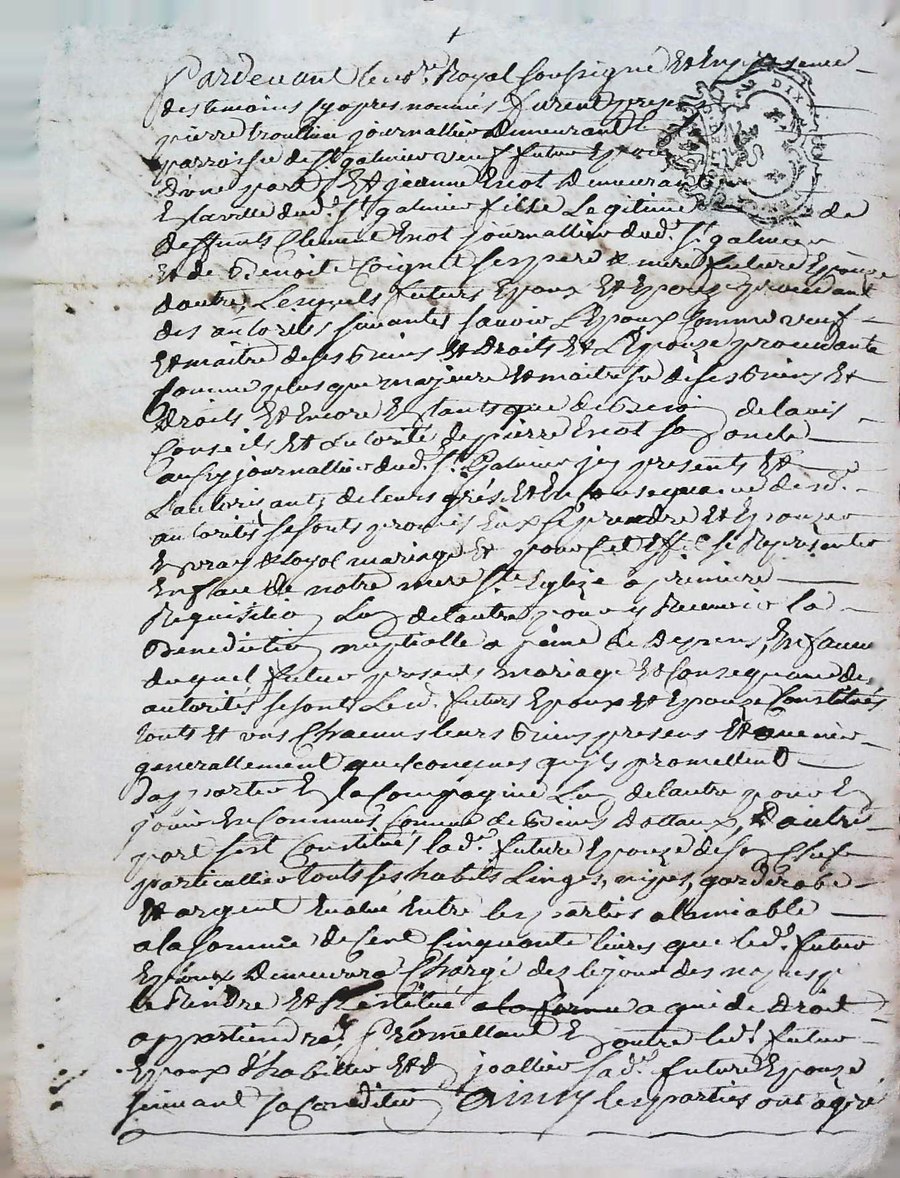 Pardevant le no.re Royal soussigné Et En presence
des temoins cy apres només furent presents
pierre journallier Demeurant
parroisse de St galmier veuf futur Epoux
d'une part Et jeanne Demeurant
En la ville dud. St galmier fille Legitime de
deffunts Clement journallier dud. St galmier
Et de Benoite Coignet ses pere & mere future Epouze
d'autre, Lesquels futurs Epoux Et Epouze procedant
des autorités suivantes savoir L'Epoux Comme veuf
Et maitre de ses biens Et Droits Et L'Epouze procedante
Comme plus que majeure Et maitresse de ses biens Et
Droits Et Encore En tant que de besoin de lavis
Conseils Et autorité de pierre son oncle
aussy journallier dud. St Galmier icy presents Et
L'autorisant, de leurs grés Et En Consequance de
autorités se sont promis Eux prendre Et Epouzer
En vray & loyal mariage Et pour Cet Effet se Représenter
En face De notre mere Ste Eglize a premiere
Requisition Lun de lautre pour y Recevoir la
Benediction nuptialle a peine de Depens, En faveur
duquel futur present mariage Et Consequance des
autorités se sont Lesd. futurs Epoux Et Epouze Constitués
touts Et uns Chacuns leurs biens presens Et avenir
generallement quelconques qu'ils promettent
d'apporter En la Compagnie Lun de lautre pour En
jouir En Commun Comme de biens Dottaux, D'autre
part s'est Constituée lad. future Epouze de son Chef
particullier touts ses habits Linges, nipes, garderobe
Et argent Evalué Entre les parties a lamiable
a la somme de Cent Cinquante livres que led. futur
Epoux Demeurera Chargé des le jour des
le Rendre Et Restitué a la forme a qui de Droit
appartiendra, Promettant En outre led. futur
Epoux d'habiller Et En joallier sad. future Epouze
suivant sa Condition Ainsy les parties ont agréé
DIX